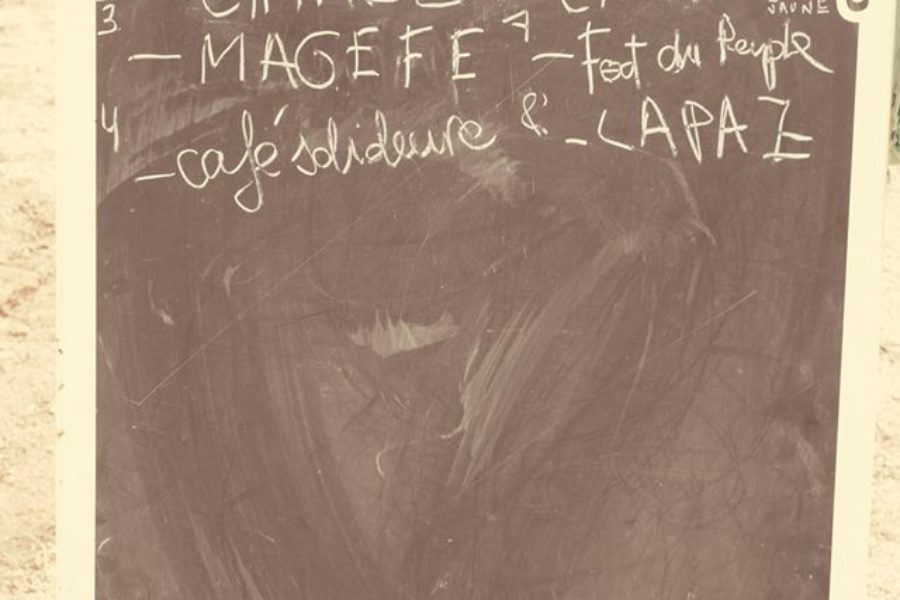 JAUNE
3 - MAGEFE 7 - Foot du Peuple
4 - café solidaire 8: - LAPAZ